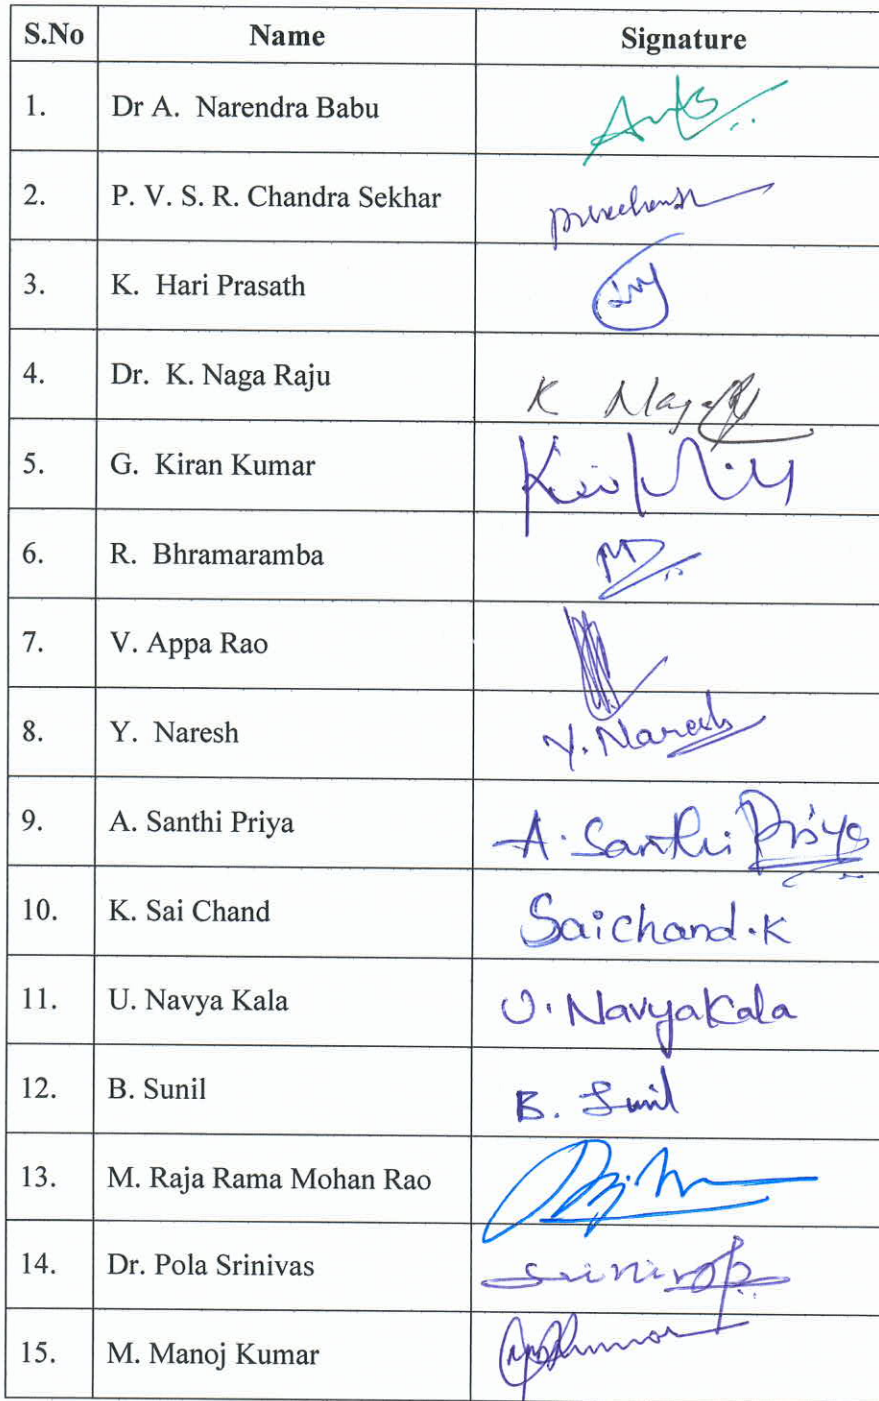 S.No Name Signature
1. Dr A. Narendra Babu
2. P. V. S. R. Chandra Sekhar
3. K. Hari Prasath
4. Dr. K. Naga Raju K
5. G. Kiran Kumar
6. R. Bhramaramba
7. V. Appa Rao
8. Y. Naresh Y. Naresh
9. A. Santhi Priya A. Santhi Priya
10. K. Sai Chand Saichand.K
11. U. Navya Kala U. NavyaKala
12. B. Sunil B. Sunil
13. M. Raja Rama Mohan Rao
14. Dr. Pola Srinivas
15. M. Manoj Kumar